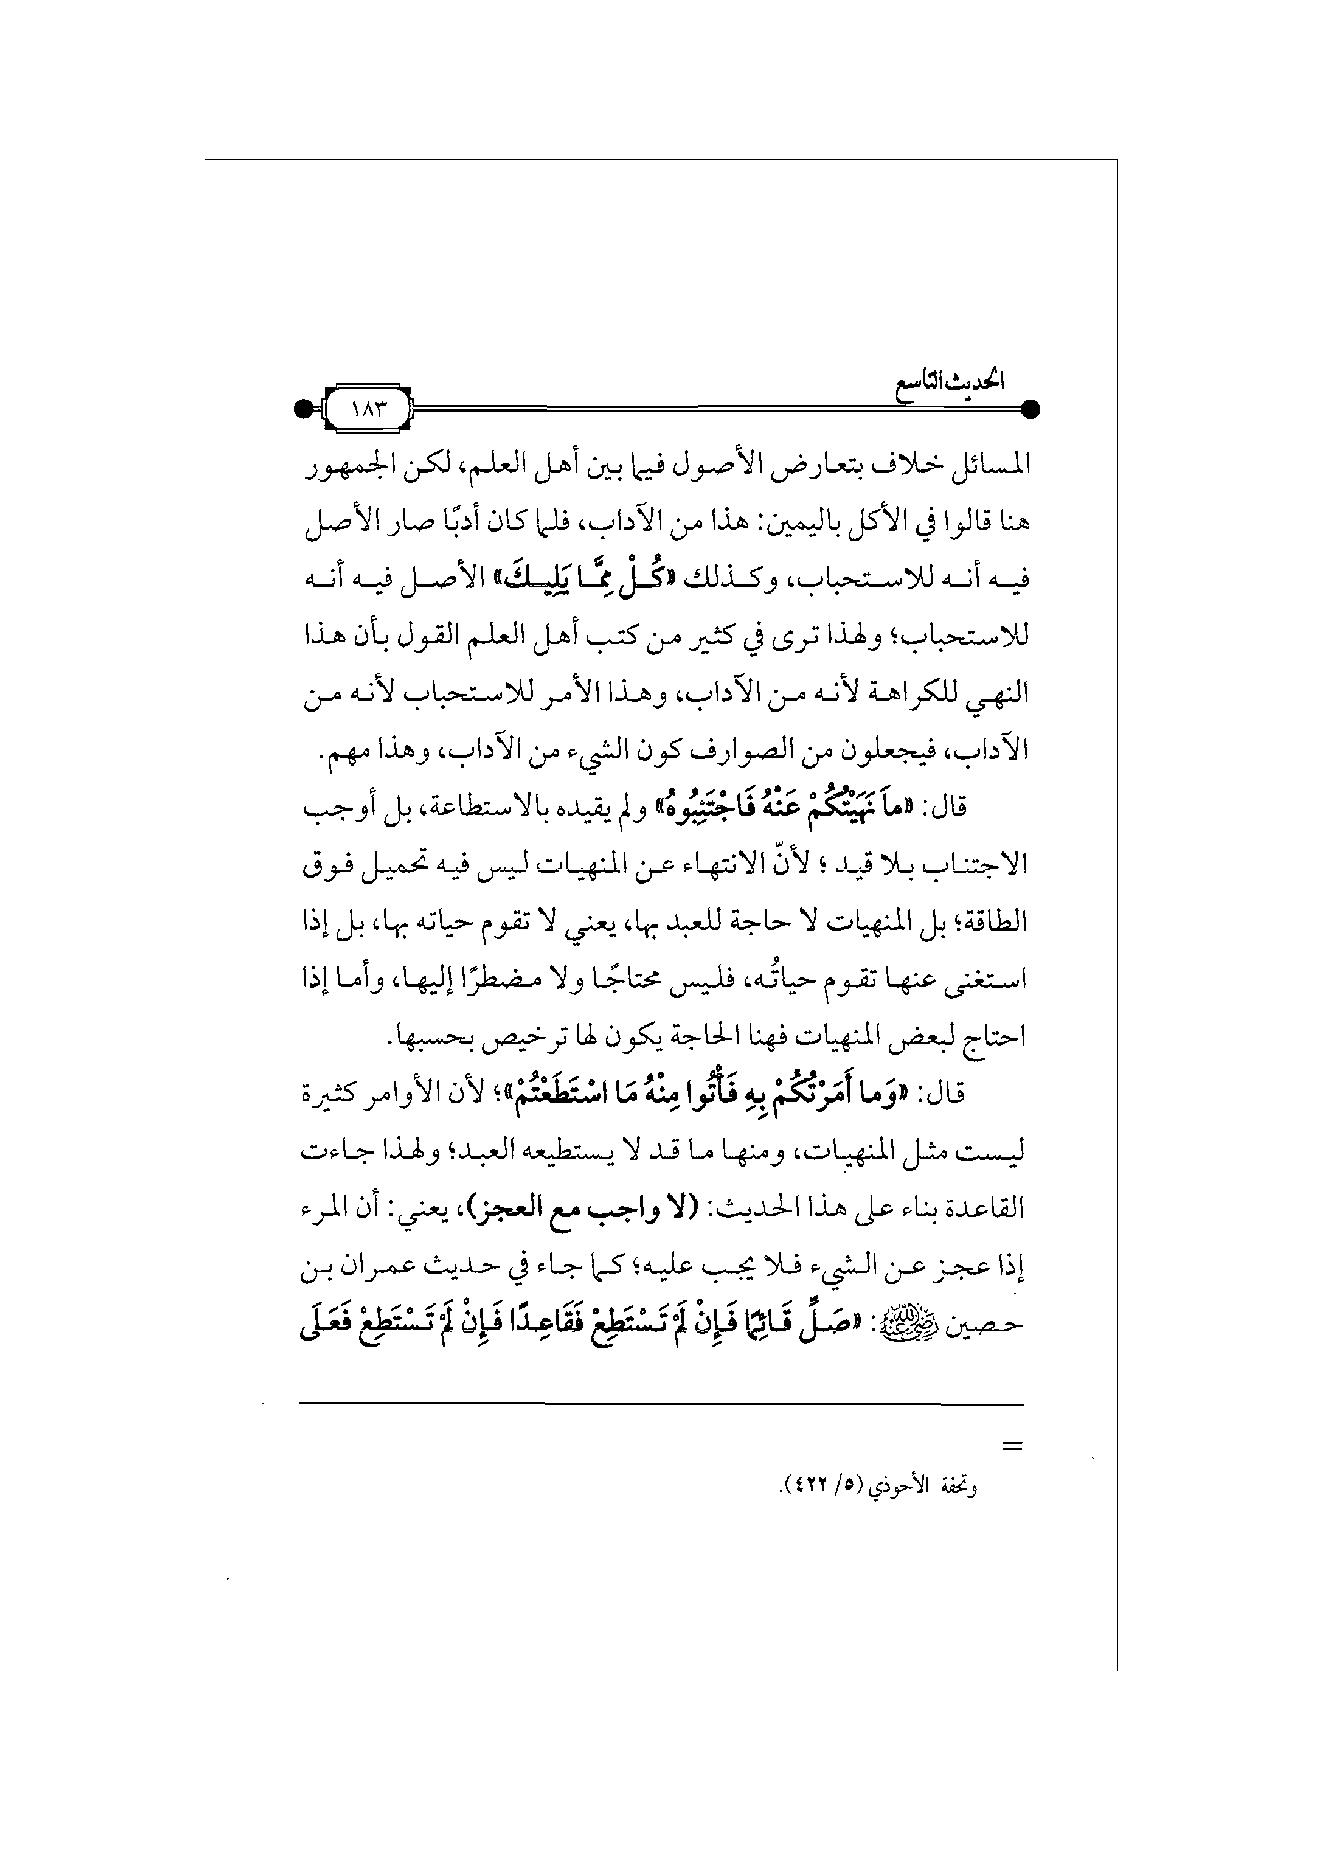 الحديث التاسع
١٨٣
المسائل خلاف بتعارض الأصول فيما بين أهل العلم، لكن الجمهور
هنا قالوا في الأكل باليمين: هذا من الآداب، فلما كان أدبًا صار الأصل
فيه أنه للاستحباب، وكذلك «كُلْ مِمَّا يَلِيكَ» الأصل فيه أنه
للاستحباب؛ ولهذا ترى في كثير من كتب أهل العلم القول بأن هذا
النهي للكراهة لأنه من الآداب، وهذا الأمر للاستحباب لأنه من
الآداب، فيجعلون من الصوارف كون الشيء من الآداب، وهذا مهم.
قال: «ماَ نَهَيْتُكُمْ عَنْهُ فَاجْتَنِبُوهُ» ولم يقيده بالاستطاعة، بل أوجب
الاجتناب بلا قيد ؛ لأنّ الانتهاء عن المنهيات ليس فيه تحميل فوق
الطاقة؛ بل المنهيات لا حاجة للعبد بها، يعني لا تقوم حياته بها، بل إذا
استغنى عنها تقوم حياتُه، فليس محتاجًا ولا مضطرًا إليها، وأما إذا
احتاج لبعض المنهيات فهنا الحاجة يكون لها ترخيص بحسبها.
قال: «وَما أَمَرْتُكُمْ بِهِ فَأْتُوا مِنْهُ مَا اسْتَطَعْتُمْ»؛ لأن الأوامر كثيرة
ليست مثل المنهيات، ومنها ما قد لا يستطيعه العبد؛ ولهذا جاءت
القاعدة بناء على هذا الحديث: (لا واجب مع العجز)، يعني: أن المرء
إذا عجز عن الشيء فلا يجب عليه؛ كما جاء في حديث عمران بن
حصين رضي الله عنه: «صَلِّ قَائِمًا فَإِنْ لَمْ تَسْتَطِعْ فَقَاعِدًا فَإِنْ لَمْ تَسْتَطِعْ فَعَلَى
=
وتحفة الأحوذي (٥/ ٤٢٢).